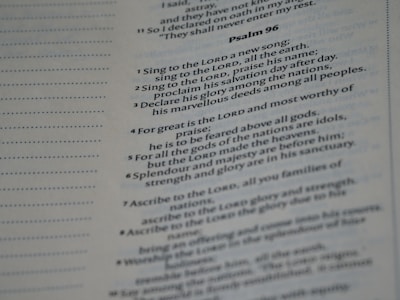 I said, 'T
astray,
and they have not kno
11 So I declared on oath in my an
'They shall never enter my rest.'
Psalm 96
1 Sing to the LORD a new song;
sing to the LORD, all the earth.
2 Sing to the LORD, praise his name;
proclaim his salvation day after day.
3 Declare his glory among the nations,
his marvellous deeds among all peoples.
4 For great is the LORD and most worthy of
praise;
he is to be feared above all gods.
5 For all the gods of the nations are idols,
but the LORD made the heavens.
6 Splendour and majesty are before him;
strength and glory are in his sanctuary.
7 Ascribe to the LORD, all you families of
nations,
ascribe to the LORD glory and strength.
8 Ascribe to the LORD the glory due to his
name;
bring an offering and come into his courts.
9 Worship the LORD in the splendour of his
holiness;
tremble before him, all the earth.
10 Say among the nations, 'The LORD reigns.'
world is firmly established, it cannot